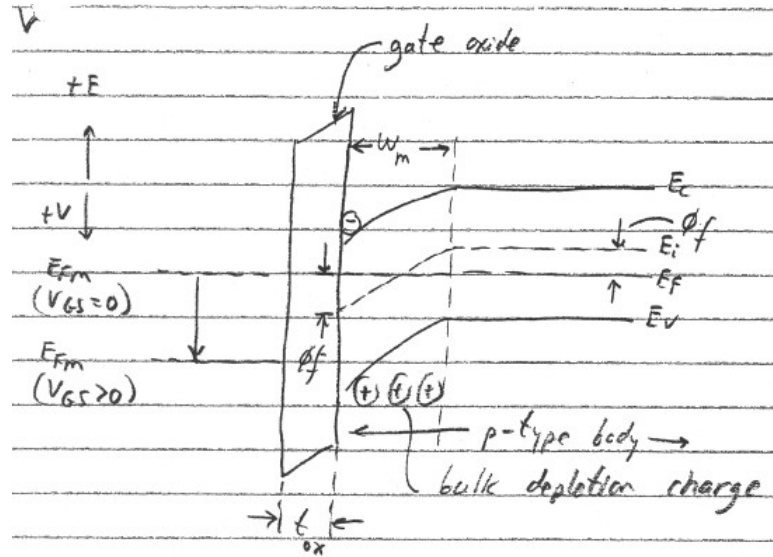 V
gate oxide
+E
W_m
E_c
+V
Øf
E_i
E_Fm
(V_GS=0)
E_F
E_V
E_Fm
(V_GS>0)
Øf
- 
+ + +
p-type body
bulk depletion charge
t_ox